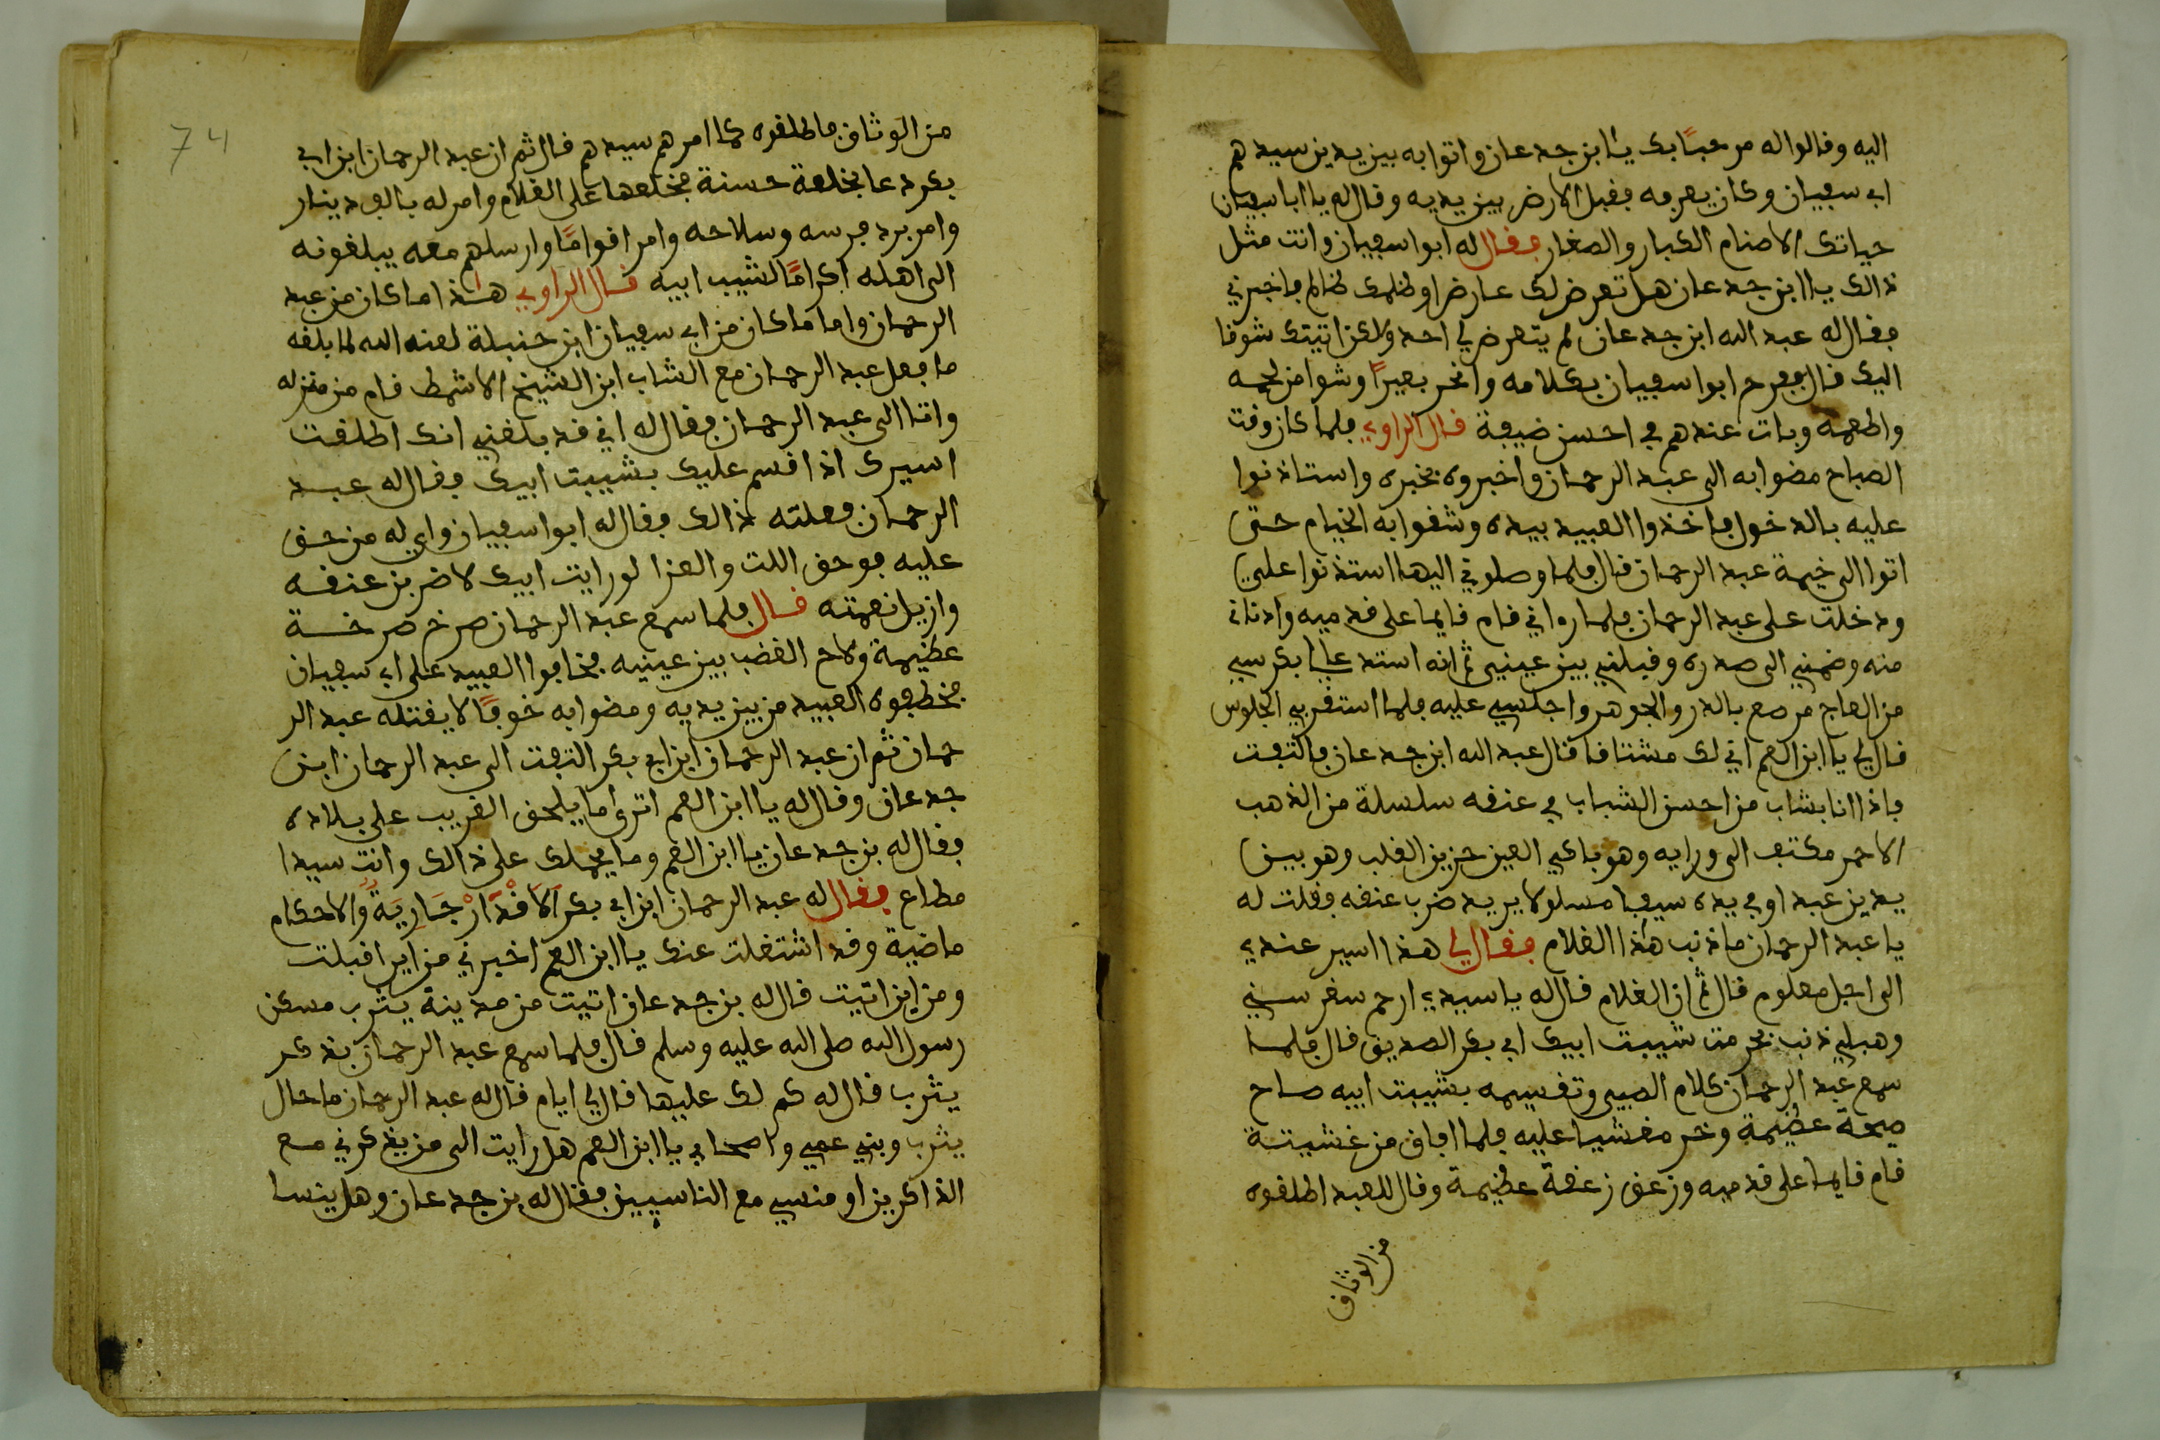 اليه وقالوا له مرحبًا بك يا ابن جدعان واتوا به بين يدين سيدهم
ابي سفيان وكان يعرفه فقبل الارض بين يديه وقال له يا ابا سفيان
حياتك الاصنام الكبار والصغار فقال له ابوا سفيان وانت مثل
ذالك يا ابن جدعان هل تعرض لك عارض او ظلمك ظالم فاخبرني
فقال له عبد الله ابن جدعان لم يتعرض لي احد ولاكن اتيتك شوقا
اليك قال ففرح ابوا سفيان بكلامه وانحر بعيرًا وشوا من لحمه
واطعمه وبات عندهم في احسن ضيفة قال الراوي فلما كان وقت
الصباح مضوا به الى عبد الرحمان واخبروه بخبره واستاذنوا
عليه بالدخول فاخذوا العبيد بيده وشقوا به الخيام حتى
اتوا الى خيمة عبد الرحمان قال فلما وصلوني اليها استذنوا علي
ودخلت على عبد الرحمان فلما رواني قام قايما على قدميه وادناني
منه وضمني الى صدره وقبلني بين عيني ثم انه استدعا لي بكرسي
من العاج مرصع بالدر والجوهر واجلسني عليه فلما استقر بي الجلوس
قال لي يا ابن العم اني لك مشتاقا قال عبد الله ابن جدعان فالتفت
فاذا انا بشاب من احسن الشباب في عنقه سلسلة من الذهب
الاحمر مكتف الى ورايه وهو باكي العين حزين القلب وهو بين
يدين عبد او في يده سيفا مسلولا يريد ضرب عنقه فقلت له
يا عبد الرحمان ما ذنب هذا الغلام فقال لي هذا اسير عندي
الى اجل معلوم قال ثم ان الغلام قال له يا سيدي ارحم صغر سني
وهب لي ذنب بحرمت شيبت ابيك ابي بكر الصديق قال فلما
سمع عبد الرحمان كلام الصبي وتقسيمه بشيبت ابيه صاح
صيحة عظيمة وخر مغشيا عليه فلما افاق من غشيتة
قام قايما على قدميه وزعق زعقة عظيمة وقال للعبد اطلقوه
من الوثاق
74
من الوثاق فاطلقوه كما امرهم سيدهم قال ثم ان عبد الرحمان ابن ابي
بكر دعا بخلعة حسنة فخلعها على الغلام وامر له بالف دينار
وامر برد فرسه وسلاحه وامر اقوامًا وارسلهم معه يبلغونه
الى اهله اكرامًا لشيب ابيه قال الراوي هذا ما كان من عبد
الرحمان واما ما كان من ابي سفيان ابن حنبلة لعنه الله لما بلغه
ما فعل عبد الرحمان مع الشاب ابن الشيخ الاشمط قام من منزله
واتا الى عبد الرحمان فقال له اني قد بلغني انك اطلقت
اسيرك اذ اقسم عليك بشيبت ابيك فقال له عبد
الرحمان فعلته ذالك فقال له ابوا سفيان واي له من حق
عليه فوحق اللت والعزا لو رايت ابيك لاضربن عنقه
وازيل نعمته قال فلما سمع عبد الرحمان صرخ صرخة
عظيمة ولاح الغضب بين عينيه فخافوا العبيد على ابي سفيان
فخطفوه العبيد من بين يديه ومضوا به خوفًا لا يقتله عبد الر
حمان ثم ان عبد الرحمان ابن ابي بكر التفت الى عبد الرحمان ابن
جدعان وقال له يا ابن العم اترى ما يلحق الغريب على بلاده
فقال له بن جدعان يا ابن العم وما يحملك على ذالك وانت سيدا
مطاع فقال له عبد الرحمان ابن ابي بكر الَاقْدَارْ جَارِيَةٌ والاحكام
ماضية وقد اشتغلت عنك يا ابن العم اخبرني من اين اقبلت
ومن اين اتيت قال له بن جدعان اتيت من مدينة يثرب مسكن
رسول الله صلى الله عليه وسلم قال فلما سمع عبد الرحمان بذكر
يثرب قال له كم لك عليها قال لي ايام قال له عبد الرحمان ما حال
يثرب وبني عمي واصحابي يا ابن العم هل رايت الى من يذكرني مع
الذاكرين او منسي مع الناسيين فقال له بن جدعان وهل ينسا